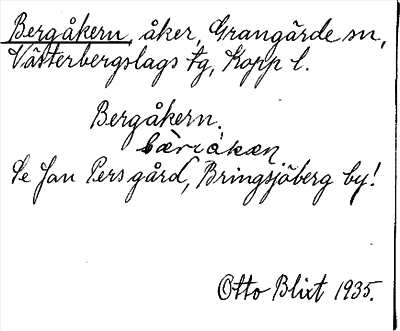 Bergåkern, åker, Grangärde sn,
Västerbergslags tg, Kopp l.
Bergåkern.
Se Jan Pers gård, Bringsjöberg by!
Otto Blixt 1935.